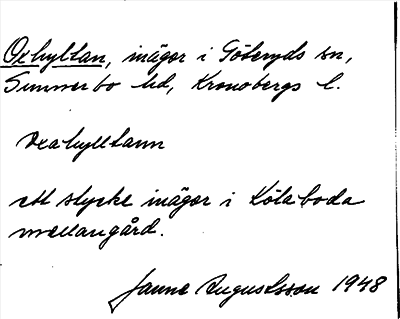 Oxhyltan, inägor i Göteryds sn,
Sunnerbo hd, Kronobergs l.
oxahylltann
ett stycke inägor i Kölaboda
mellangård.
Janne Augustsson 1948